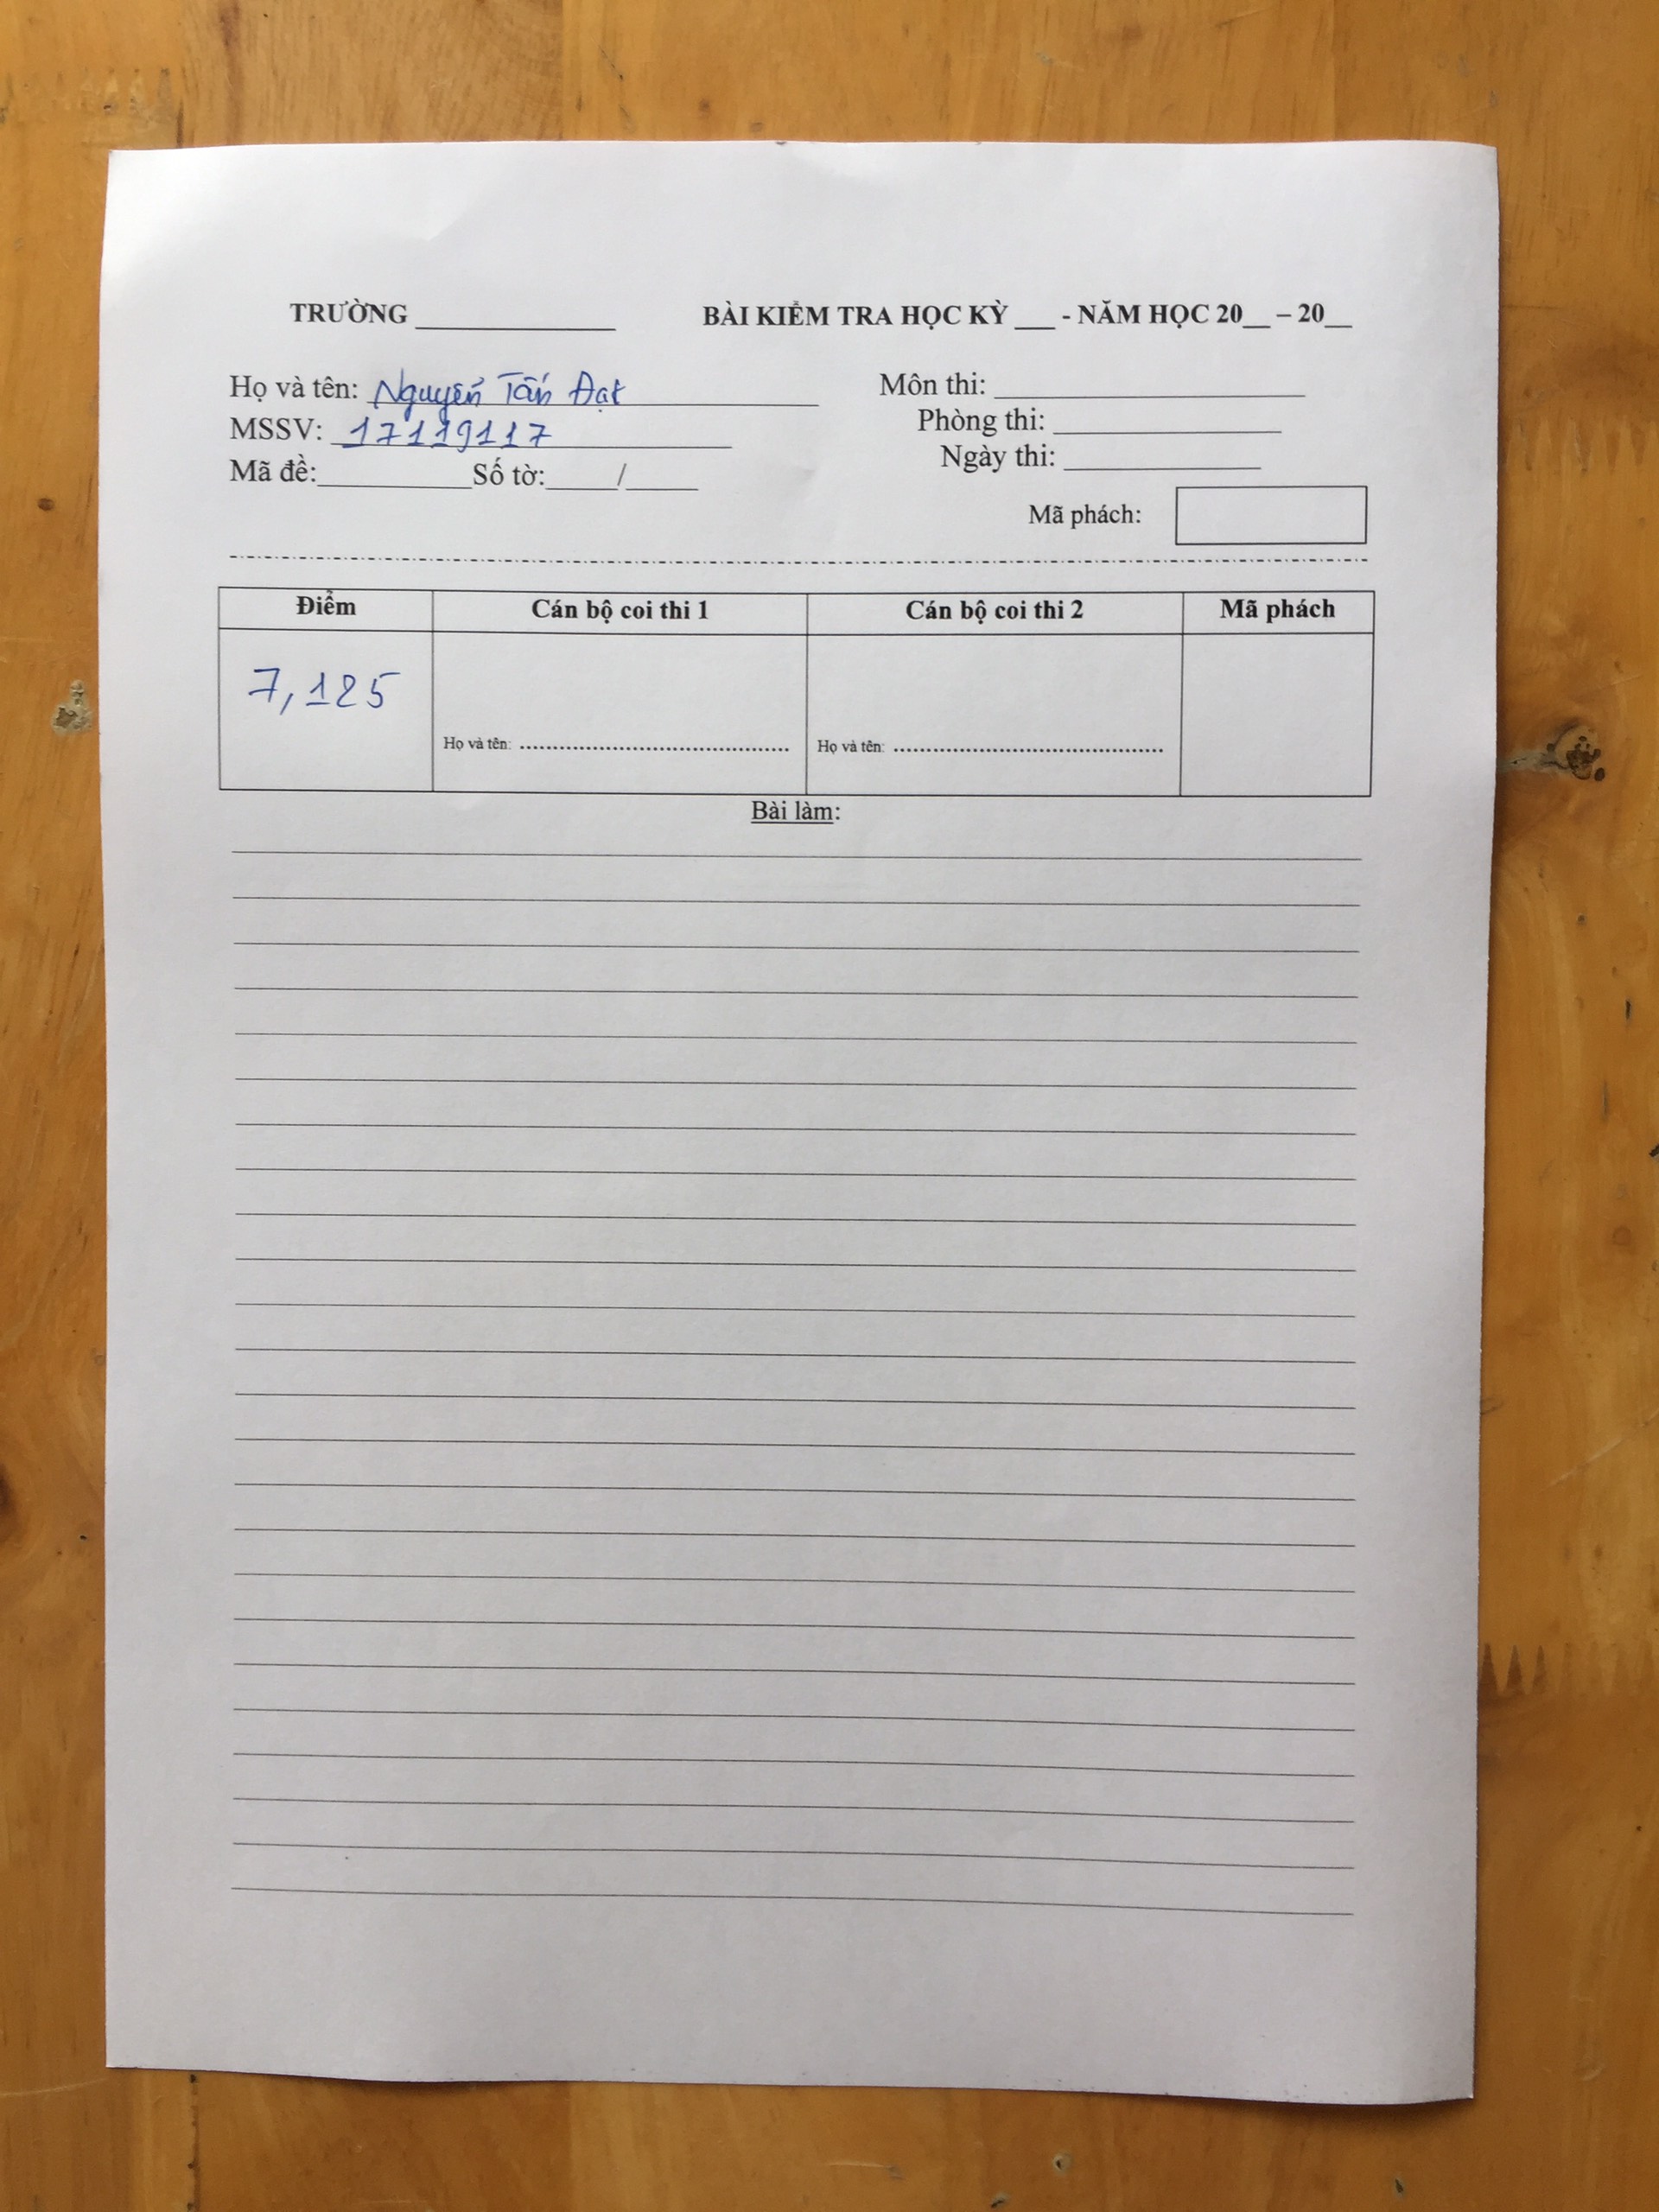 TRƯỜNG ______________ BÀI KIỂM TRA HỌC KỲ ___ - NĂM HỌC 20__ – 20__
Họ và tên: Nguyễn Tấn Đạt Môn thi: ______________________
MSSV: 17119117 Phòng thi: ________________
Mã đề:___________Số tờ:_____/_____ Ngày thi: ______________
Mã phách:
Điểm Cán bộ coi thi 1 Cán bộ coi thi 2 Mã phách
7,125
Họ và tên: ................................................ Họ và tên: ................................................
Bài làm: